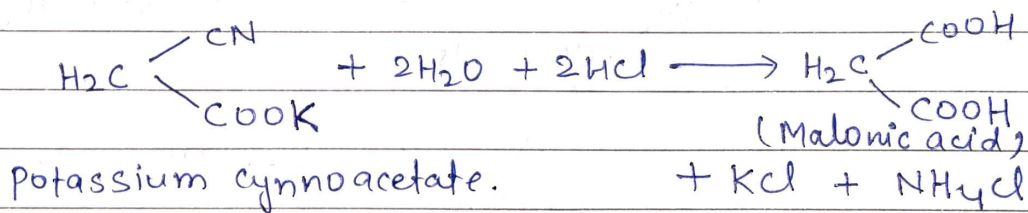 CN COOH
H2C + 2H2O + 2HCl ⟶ H2C
COOK COOH
(Malonic acid)
Potassium cynnoacetate. + KCl + NH4Cl